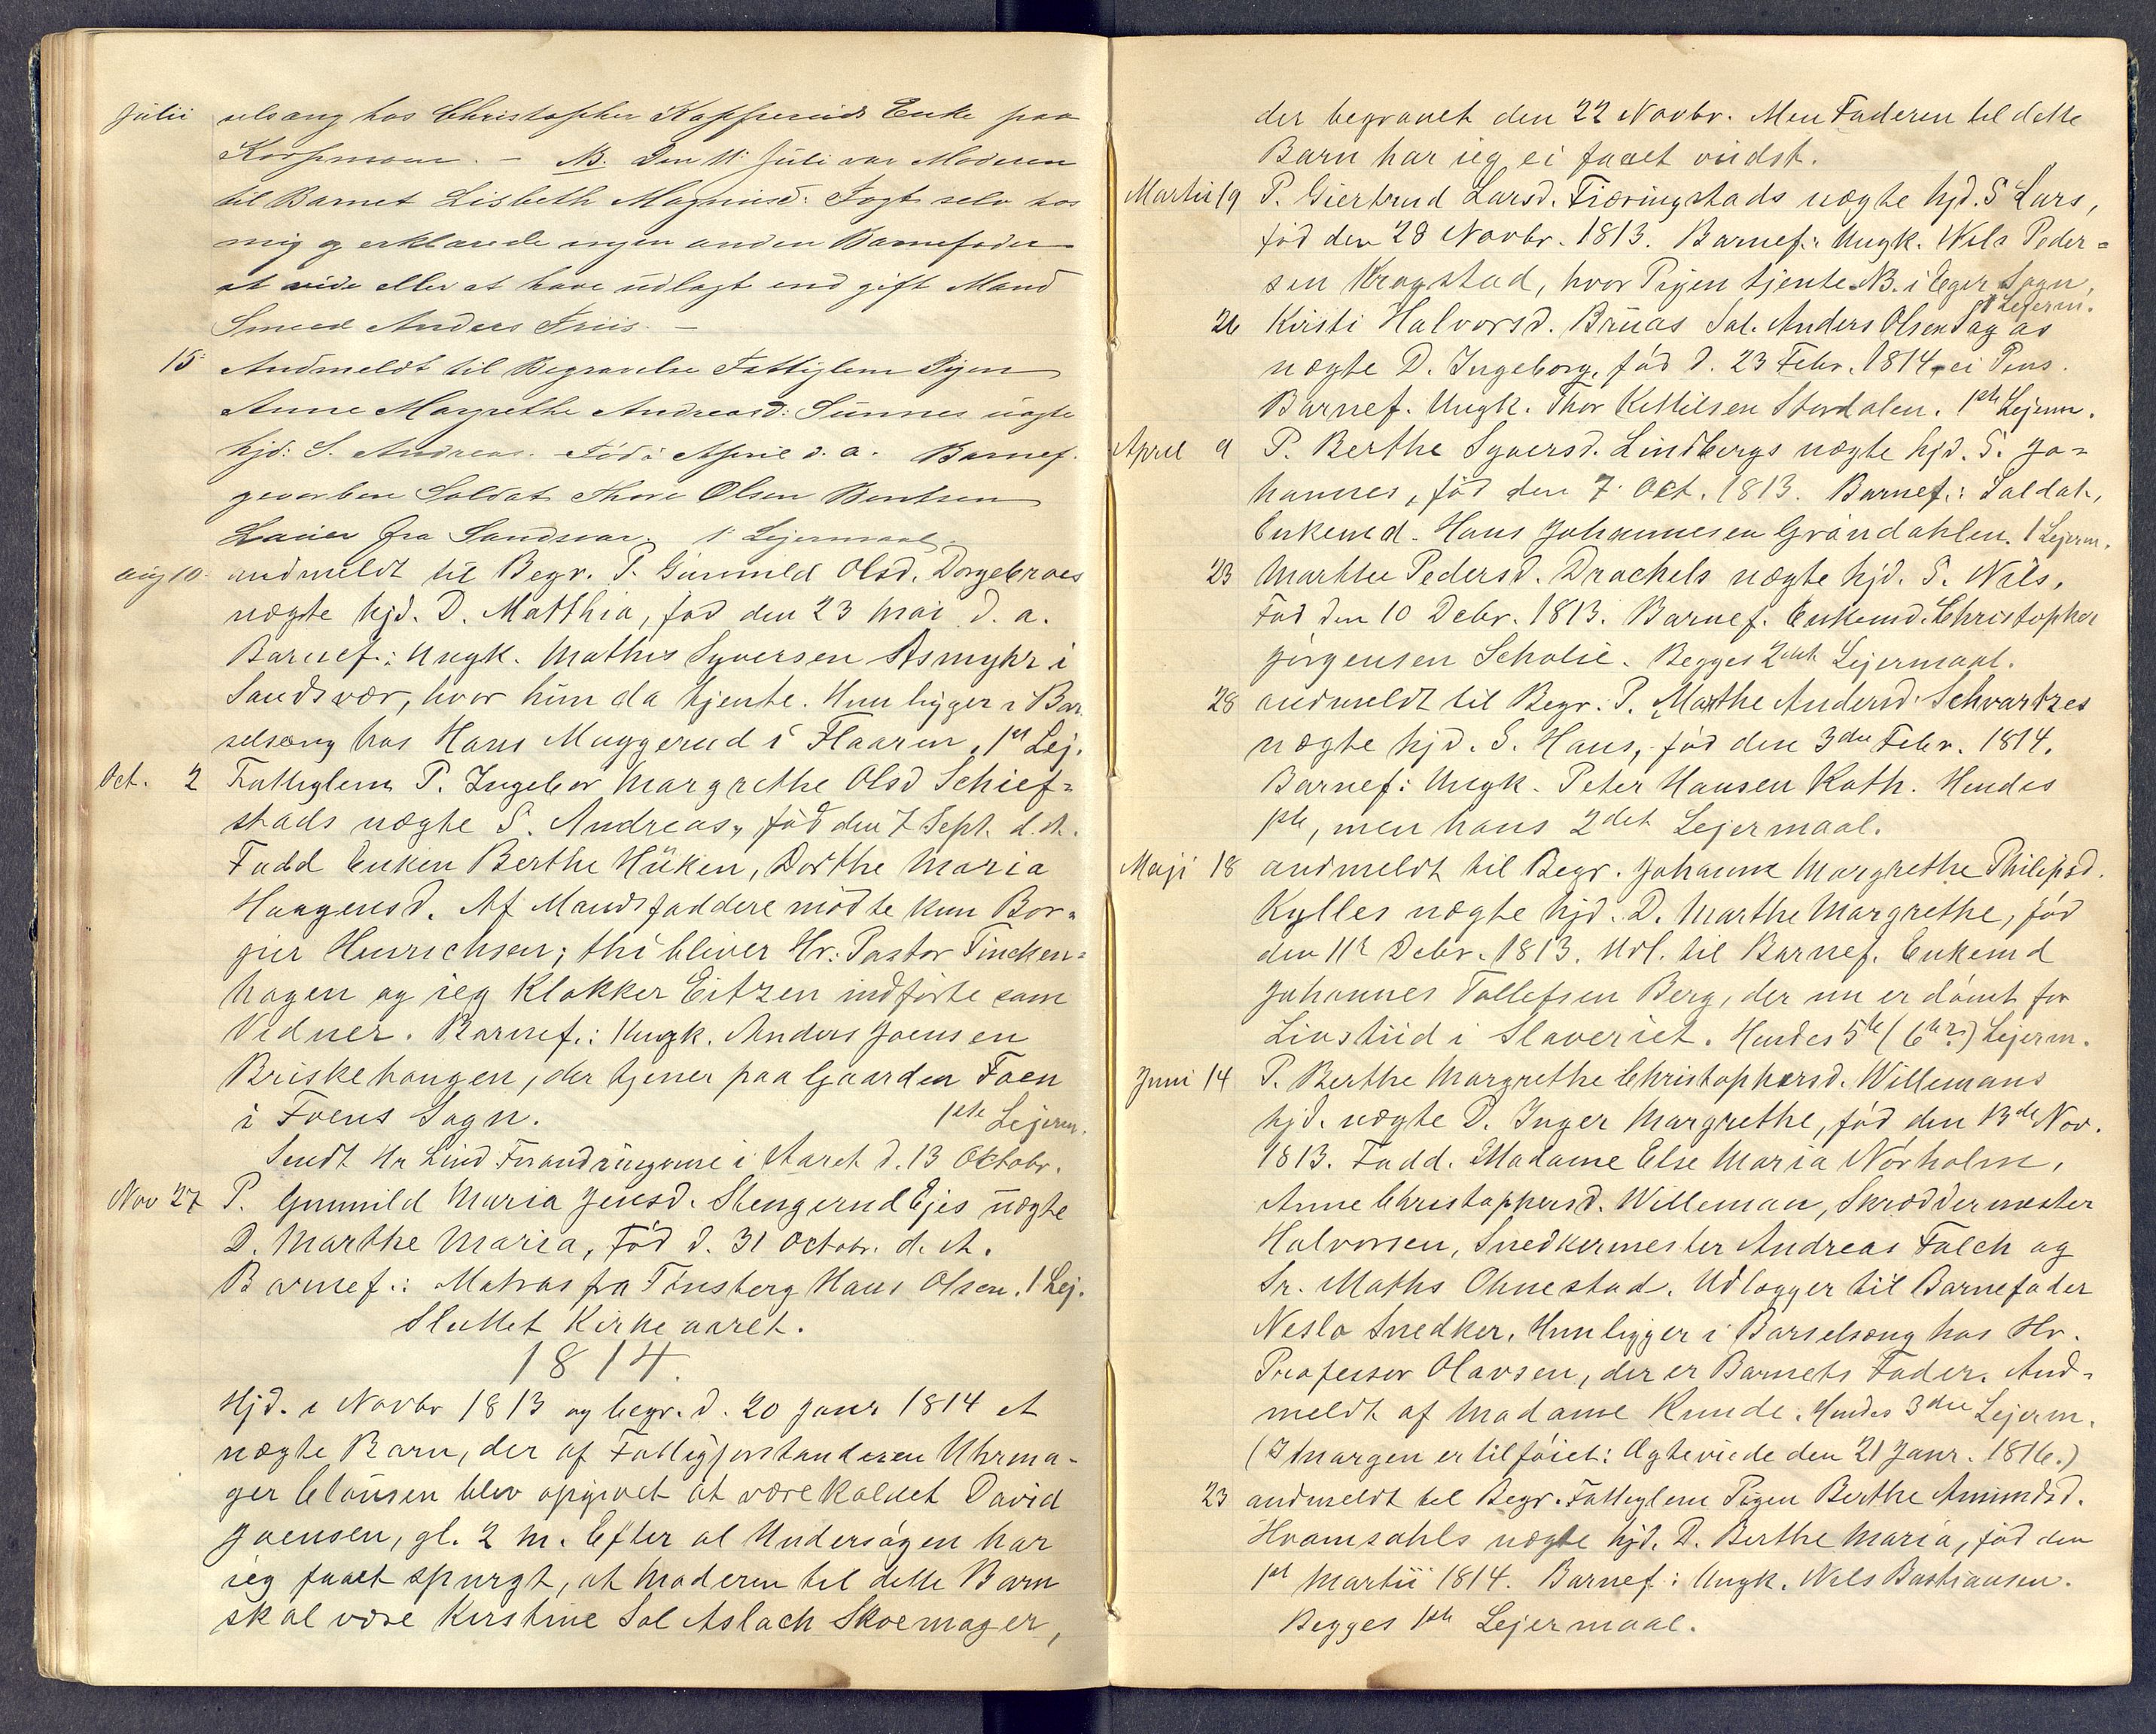 Julii selsæng hos Christopher Kopperuds Enke paa
Korpemoen. – NB. Den 11 Juli var Moderen
til Barnet Lisbeth Magnusd: Fogt selv hos
mig og erklærede ingen anden Barnefader
at vide eller at have udlagt end gift Mand
Smeed Anders Friis. –
15 Andmeldt til Begravelse Fattiglem Pigen
Anne Margrethe Andreasd: Sunnes uægte
hjd: S. Andreas. Föd i April d. a. Barnef.
gevorben Soldat Thore Olsen Bentsen
Lauer fra Sandsvær. 1 Lejermaal.
Aug 10 andmeldt til Begr. P. Gunnild Olsd. Dorgebraes
uægte hjd. D. Matthia, föd den 23 Mai d. a.
Barnef.: Ungk. Mathis Syversen Asmyhr i
Sandsvær, hvor hun da tjente. Hun ligger i Bar
selsæng hos Hans Muggerud i Flaaren. 1st Lej.
Oct. 2 Fattiglem P. Ingebor Margrethe Olsd Schief=
stads uægte S. Andreas, föd den 7 Sept. d. A.
Fadd Enken Berthe Hüken, Dorthe Maria
Haagensd. Af Mandsfaddere mödte kun Bör=
gier Hinrichsen; thi bliver Hr. Pastor Fincken=
hagen og ieg Klokker Eitzen indförte som
Vidner. Barnef.: Ungk. Anders Joensen
Briskehaugen, der tjener paa Gaarden Foen
i Foens Sogn. 1ste Lejerm.
Sendt Hr Lind Forandringerne i Aaret d. 13 Oktobr.
Nov 27 P. Gunnild Maria Jensd. Stengerud Ejes uægte
D. Marthe Maria, föd d. 31 Octobr. d. A.
Barnef.: Matros fra Tönsberg Hans Olsen. 1 Lej.
Sluttet Kirkeaaret.
1814.
Hjd. i Novbr 1813 og begr. d. 20 Janr 1814 et
uægte Barn, der af Fattigforstanderen Uhrma-
ger Clausen blev opgivet at være kaldet David
Joensen, gl. 2 M. Efter al Undersögen har
ieg faaet spurgt, at Moderen til dette Barn
skal være Kirstine Sal Aslach Skoemager,
der begravet den 22 Novbr. Men Faderen til dette
Barn har ieg ei faaet vidst.
Martii 19 P. Giertrud Larsd. Fiæringstads uægte hjd. S Lars,
föd den 28 Novbr. 1813. Barnef.: Ungk. Nils Peder=
sen Kragstad, hvor Pigen tjente NB. i Eger Sogn,
1st Lejerm.
26 Kirsti Halvorsd. Bruas Sal. Anders Olsen Sagas
uægte D. Ingeborg, föd d. 23 Febr. 1814, ei Pens.
Barnef. Ungk. Thor Kittilsen Stordalen. 1ste Lejerm.
April 9 P. Berthe Syversd. Lindbergs uægte hjd. S. Jo=
hannes, föd den 7 Oct. 1813. Barnef.: Soldat,
Enkemd. Hans Johannesen Gröndahlen. 1 Lejerm.
23 Marthe Pedersd. Drachels uægte hjd. S. Nils,
Föd den 10 Debr. 1813. Barnef. Enkemd. Christopher
Jörgensen Scholie. Begges 2det Lejermaal.
28 andmeldt til Begr. P. Marthe Andersd. Schvartzes
uægte hjd. S. Hans, föd den 3die Febr. 1814.
Barnef: Ungk. Peter Hansen Kath. Hendes
1ste, men hans 2det Lejermaal.
Maji 18 andmeldt til Begr. Johanne Margrethe Philipsd.
Kylles uægte hjd. D. Marthe Margrethe, föd
den 11te Debr. 1813. Udl. til Barnef. Enkemd
Johannes Tollefsen Berg, der nu er dömt for
Livstiid i Slaveriet. Hendes 5te (6te?) Lejerm.
Juni 14 P. Berthe Margrethe Christophersd. Willemans
hjd. uægte D. Inger Margrethe, föd den 13de Nov.
1813. Fadd. Madame Else Maria Nörholm,
Anne Christophersd. Willeman, Skræddermester
Halvorsen, Snedkermester Andreas Falch og
Sr. Maths Ohnestad. Udlægger til Barnefader
Neslo Snedker. Hun ligger i Barselsæng hos Hr.
Professor Olavsen, der er Barnets Fader. And-
meldt af Madame Kunde. Hendes 3die Lejerm.
(I Margen er tilföiet: Ægteviede den 21 Janr. 1816.)
23 andmeldt til Begr. Fattiglem Pigen Berthe Amundsd.
Hvamsahls uægte hjd. D. Berthe Maria, föd den
1st Martii 1814. Barnef: Ungk. Nils Bastiansen.
Begges 1ste Lejermaal.